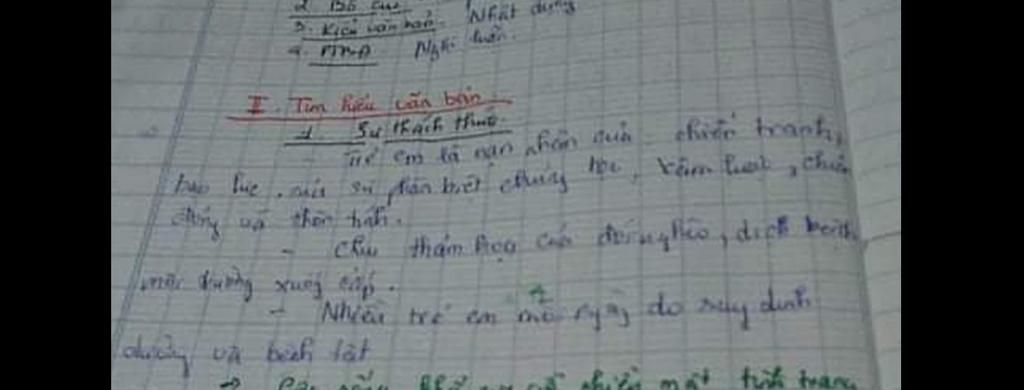 2. Bố cục
3. Kiểu văn bản. Nhật dụng
4. PTBĐ Nghị luận.
II. Tìm hiểu văn bản.
1. Sự thách thức.
- Trẻ em là nạn nhân của chiến tranh,
bạo lực, sự phân biệt chủng tộc, xâm lược, chiếm
đóng và thôn tính.
- Chịu thảm họa của đói nghèo, dịch bệnh,
môi trường xuống cấp.
- Nhiều trẻ em mỗi ngày do suy dinh
dưỡng và bệnh tật